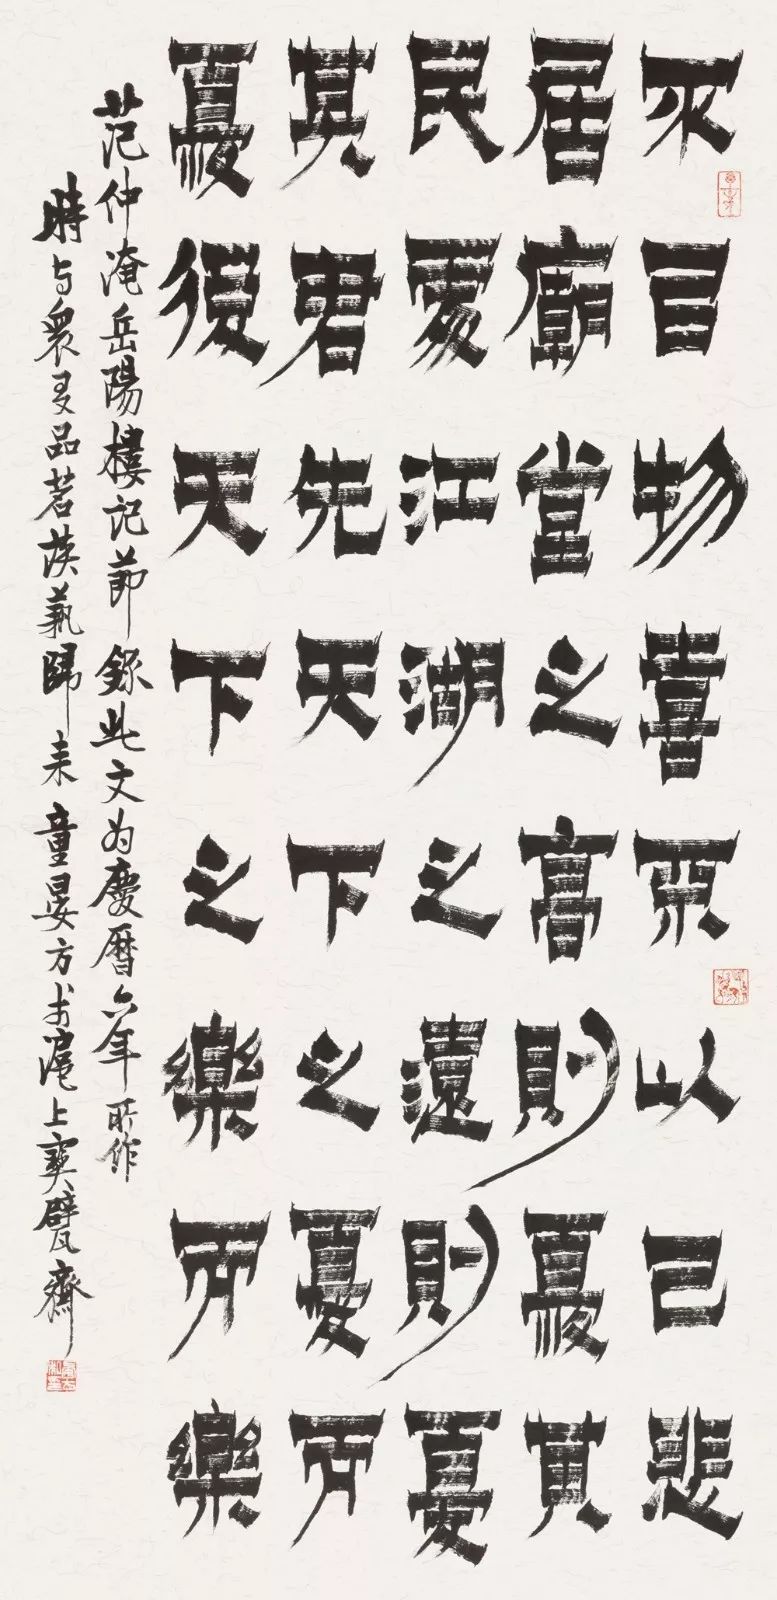 不以物喜不以己悲
居廟堂之高則憂其
民處江湖之遠則憂
其君先天下之憂而
憂後天下之樂而樂
范仲淹岳陽樓記節錄此文为慶曆六年所作
時与眾友品茗談藝歸来童晏方书滬上寶甓齋